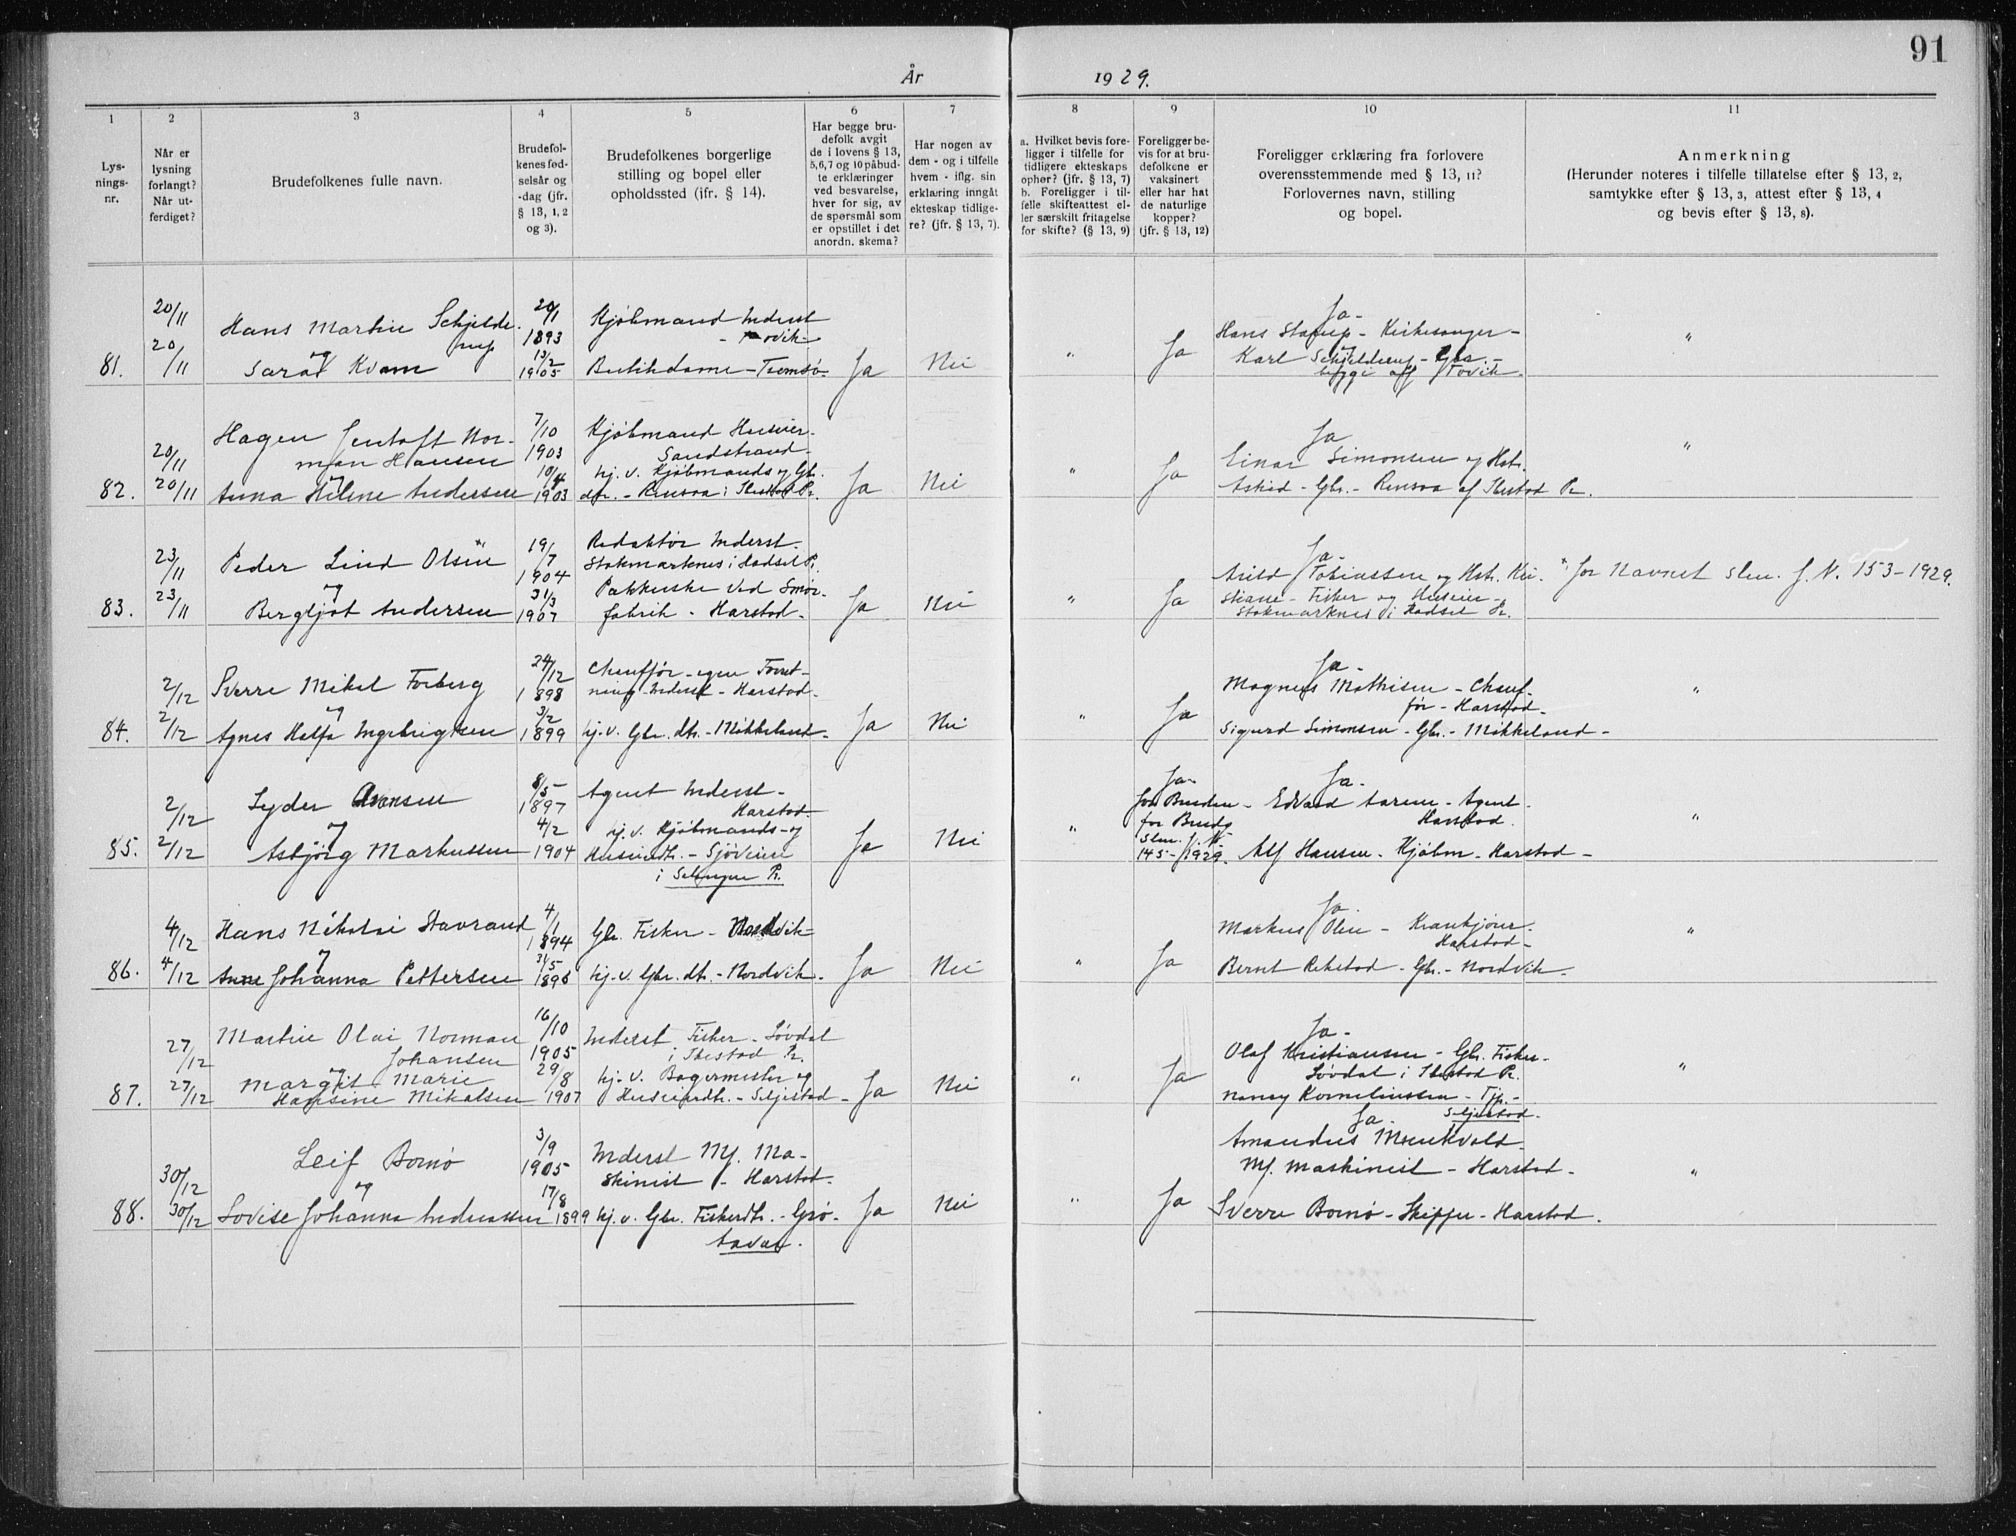 91
År 1929.
1 2 3 4 5 6 7 8 9 10 11
Lys-
nings-
nr.
Når er
lysning
forlangt?
Når ut-
ferdiget?
Brudefolkenes fulle navn.
Brudefol-
kenes fød-
selsår og
-dag (jfr.
§ 13, 1, 2
og 3).
Brudefolkenes borgerlige
stilling og bopel eller
opholdssted (jfr. § 14).
Har begge bru-
defolk avgit
de i lovens § 13,
5,6,7 og 10 påbud-
te erklæringer
ved besvarelse,
hver for sig, av
de spørsmål som
er opstillet i det
anordn. skema?
Har nogen av
dem - og i tilfelle
hvem - iflg. sin
erklæring inngåt
ekteskap tidlige-
re? (jfr. § 13, 7).
a. Hvilket bevis fore-
ligger i tilfelle for
tidligere ekteskaps
ophør? (jfr. § 13, 7)
b. Foreligger i til-
felle skifteattest el-
ler særskilt fritagelse
for skifte? (§ 13, 9)
Foreligger be-
vis for at bru-
defolkene er
vaksinert
eller har hat
de naturlige
kopper?
(jfr. § 13, 12)
Foreligger erklæring fra forlovere
overensstemmende med § 13, 11?
Forlovernes navn, stilling
og bopel.
Anmerkning
(Herunder noteres i tilfelle tillatelse efter § 13, 2,
samtykke efter § 13, 3, attest efter § 13, 4
og bevis efter § 13, 8).
81.
20/11
20/11
Hans Martin Schjelde-
rup
og
Sara Kvam
20/1
1893
13/2
1905
Kjøbmand Inderst
- Tovik -
Butikdame - Tromsø -
Ja
Nei
"
Ja
Ja -
Hans Starup - Kirkesanger -
Karl Schjelderup - Gbr. -
begge af Tovik -
"
82.
20/11
20/11
Hagen Jentoft Nor-
man Hansen
og
Anna Helene Andersen
7/10
1903
10/4
1903
Kjøbmand Huseier -
Sandstrand -
hj. v. Kjøbmands og Gbr.
dtr. - Rensaa i Ibestad Pr.
Ja
Nei
"
Ja
Ja
Einar Simonsen og Hst.
Astad - Gbr. - Rensaa af Ibestad Pr.
"
83.
23/11
23/11
Peder Lind Olsen *
og
Bergljot Andersen
19/7
1904
31/3
1907
Redaktør Inderst -
Stokmarknes i Hadsel Pr.
Pakkerske ved Smør-
fabrik - Harstad -
Ja
Nei
"
Ja
Ja -
Arild Tobiassen og Hst. Kri-
stiane - Fisker og Huseier -
Stokmarknes i Hadsel Pr.
* for Navnet slm. J. N. 153 - 1929.
84.
2/12
2/12
Sverre Mikal Forberg
og
Agnes Halfa Ingebrigtsen
24/12
1898
3/2
1899
Chauffør - egen Forret-
ning - Inderst - Harstad -
hj. v. Gbr. dtr. - Mikkeland -
Ja
Nei
"
Ja
Ja -
Magnus Mathisen - Chauf-
før - Harstad -
Sigurd Simonsen - Gbr. - Mikkeland -
"
85.
2/12
2/12
Lyder Arensen
og
Asbjørg Markussen
8/5
1897
4/2
1904
Agent Inderst -
Harstad -
hj. v. Kjøbmands - og
Huseierdtr. - Sjøveien
i Salangen Pr.
Ja
Nei
"
Ja -
for Bruden -
for Brudg.
slm. J. N.
145 - 1929.
Ja -
Edvard Aarnen - Agent -
Harstad.
Alf Hansen - Kjøbm - Harstad -
"
86.
4/12
4/12
Hans Nikolai Stavrand
og
Anne Johanna Pettersen
4/1
1894
21/5
1895
Gbr. Fisker - Nordvik -
hj. v. Gbr. dtr. - Nordvik -
Ja
Nei
"
Ja
Ja
Markus Olsen - Krankjører -
Harstad -
Bernt Rekstad - Gbr. - Nordvik -
"
87.
27/12
27/12
Martin Olai Norman
Johansen
og
Margit Marie
Hansine Mikalsen
16/10
1905
29/8
1907
Inderst Fisker - Løvdal
i Ibestad Pr.
hj. v. Bagermester og
Huseierdtr. - Seljestad -
Ja
Nei
"
Ja
Ja -
Olaf Kristiansen - Gbr. Fisker -
Løvdal i Ibestad Pr.
Nancy Korneliussen - Tjp. -
Seljestad -
"
88.
30/12
30/12
Leif Bornø
og
Lovise Johanna Andreassen
3/9
1905
17/8
1899
Inderst Mf. Ma-
skinist - Harstad -
hj. v. Gbr. Fiskerdtr. - Grø-
tavær.
Ja
Nei
"
Ja
Ja
Amandus Munkvold
Mf. Maskinist - Harstad -
Sverre Bornø - Skipper - Harstad.
"